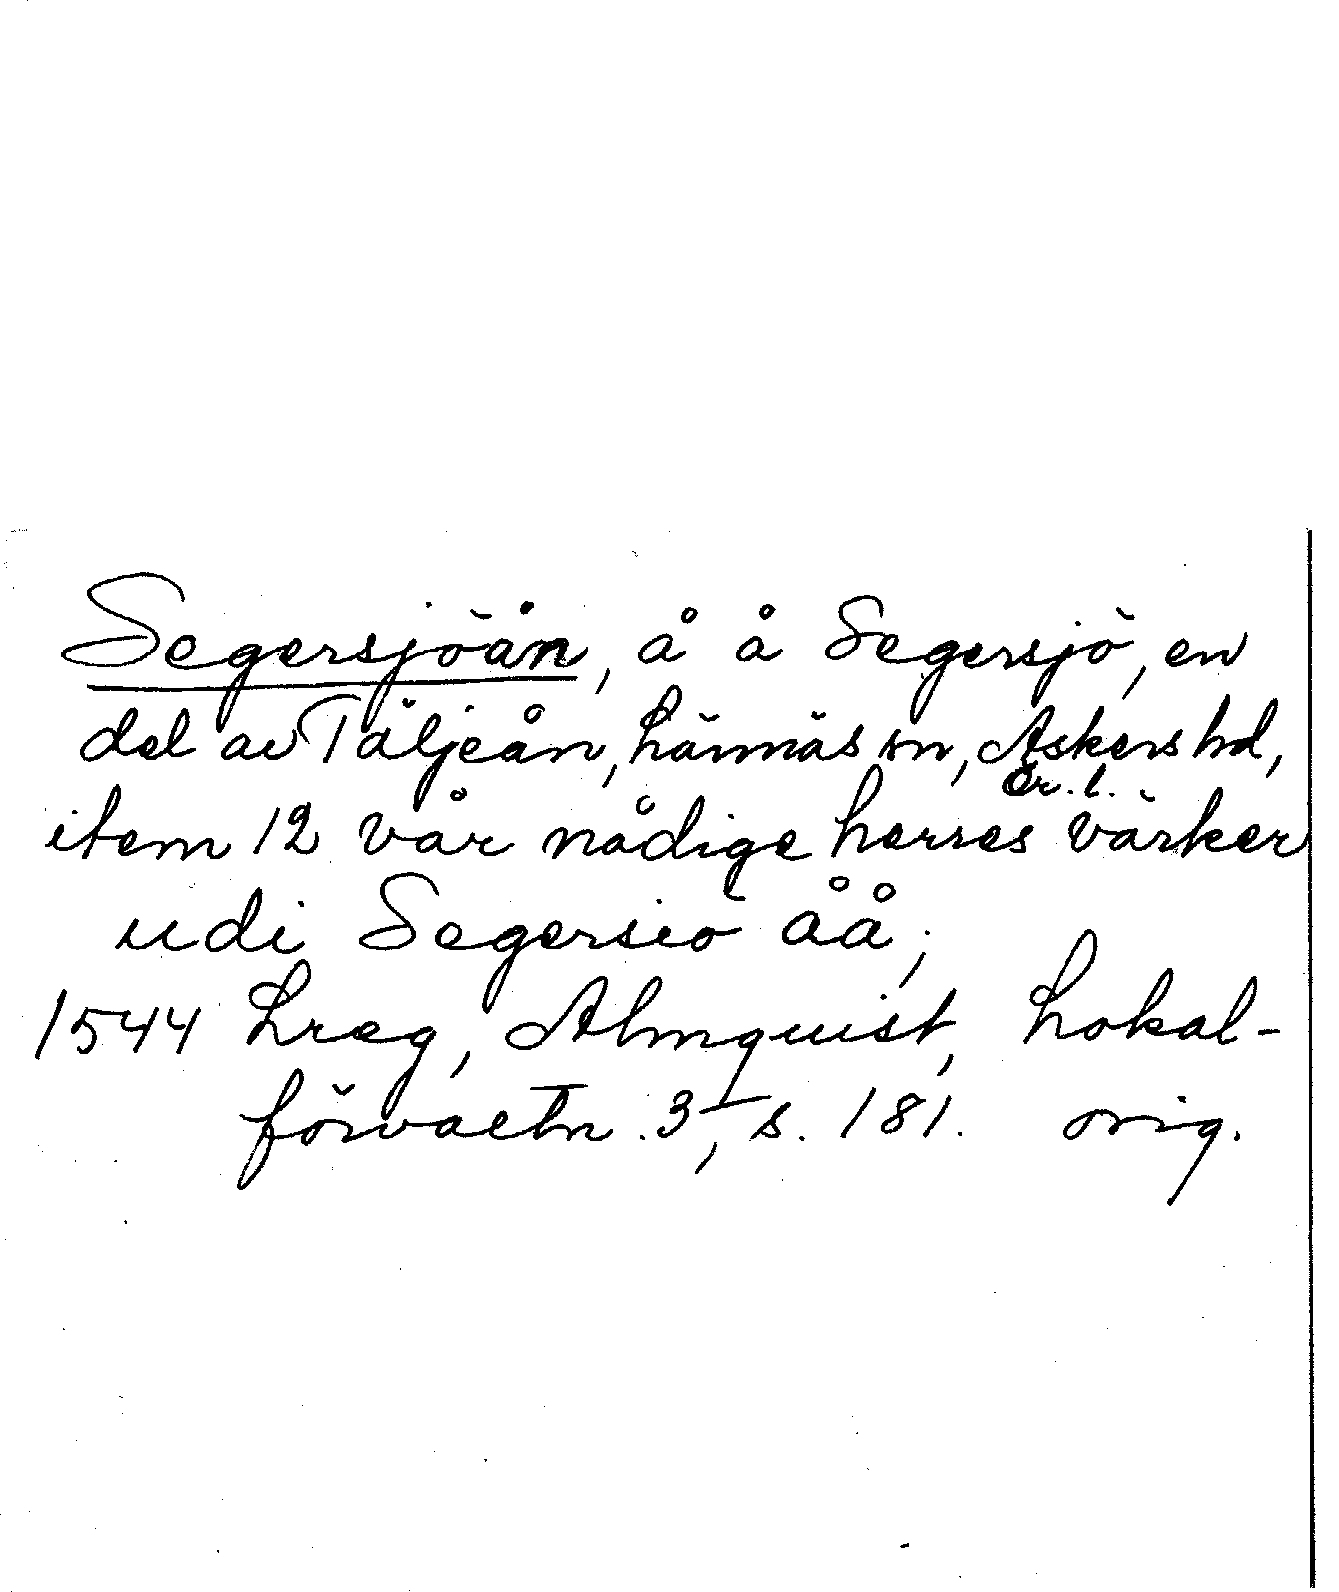 Segersjöån, å å Segersjö, en
del av Täljeån, Lännäs sn, Askers hd,
Ör. l.
item 12 vår nådige herres värker
udi Segersio åå;
1544 Lreg, Almquist, Lokal-
förvaltn. 3, s. 181. orig.